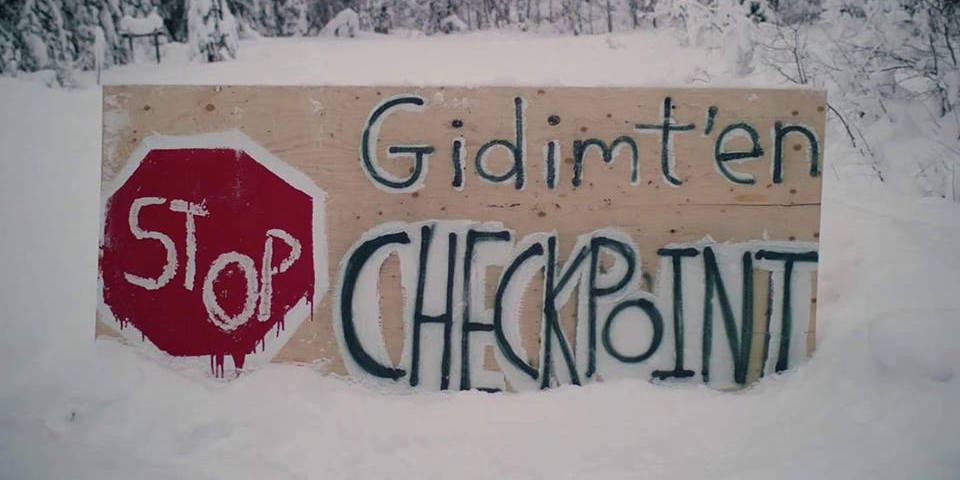 STOP
Gidimt'en
CHECKPOINT